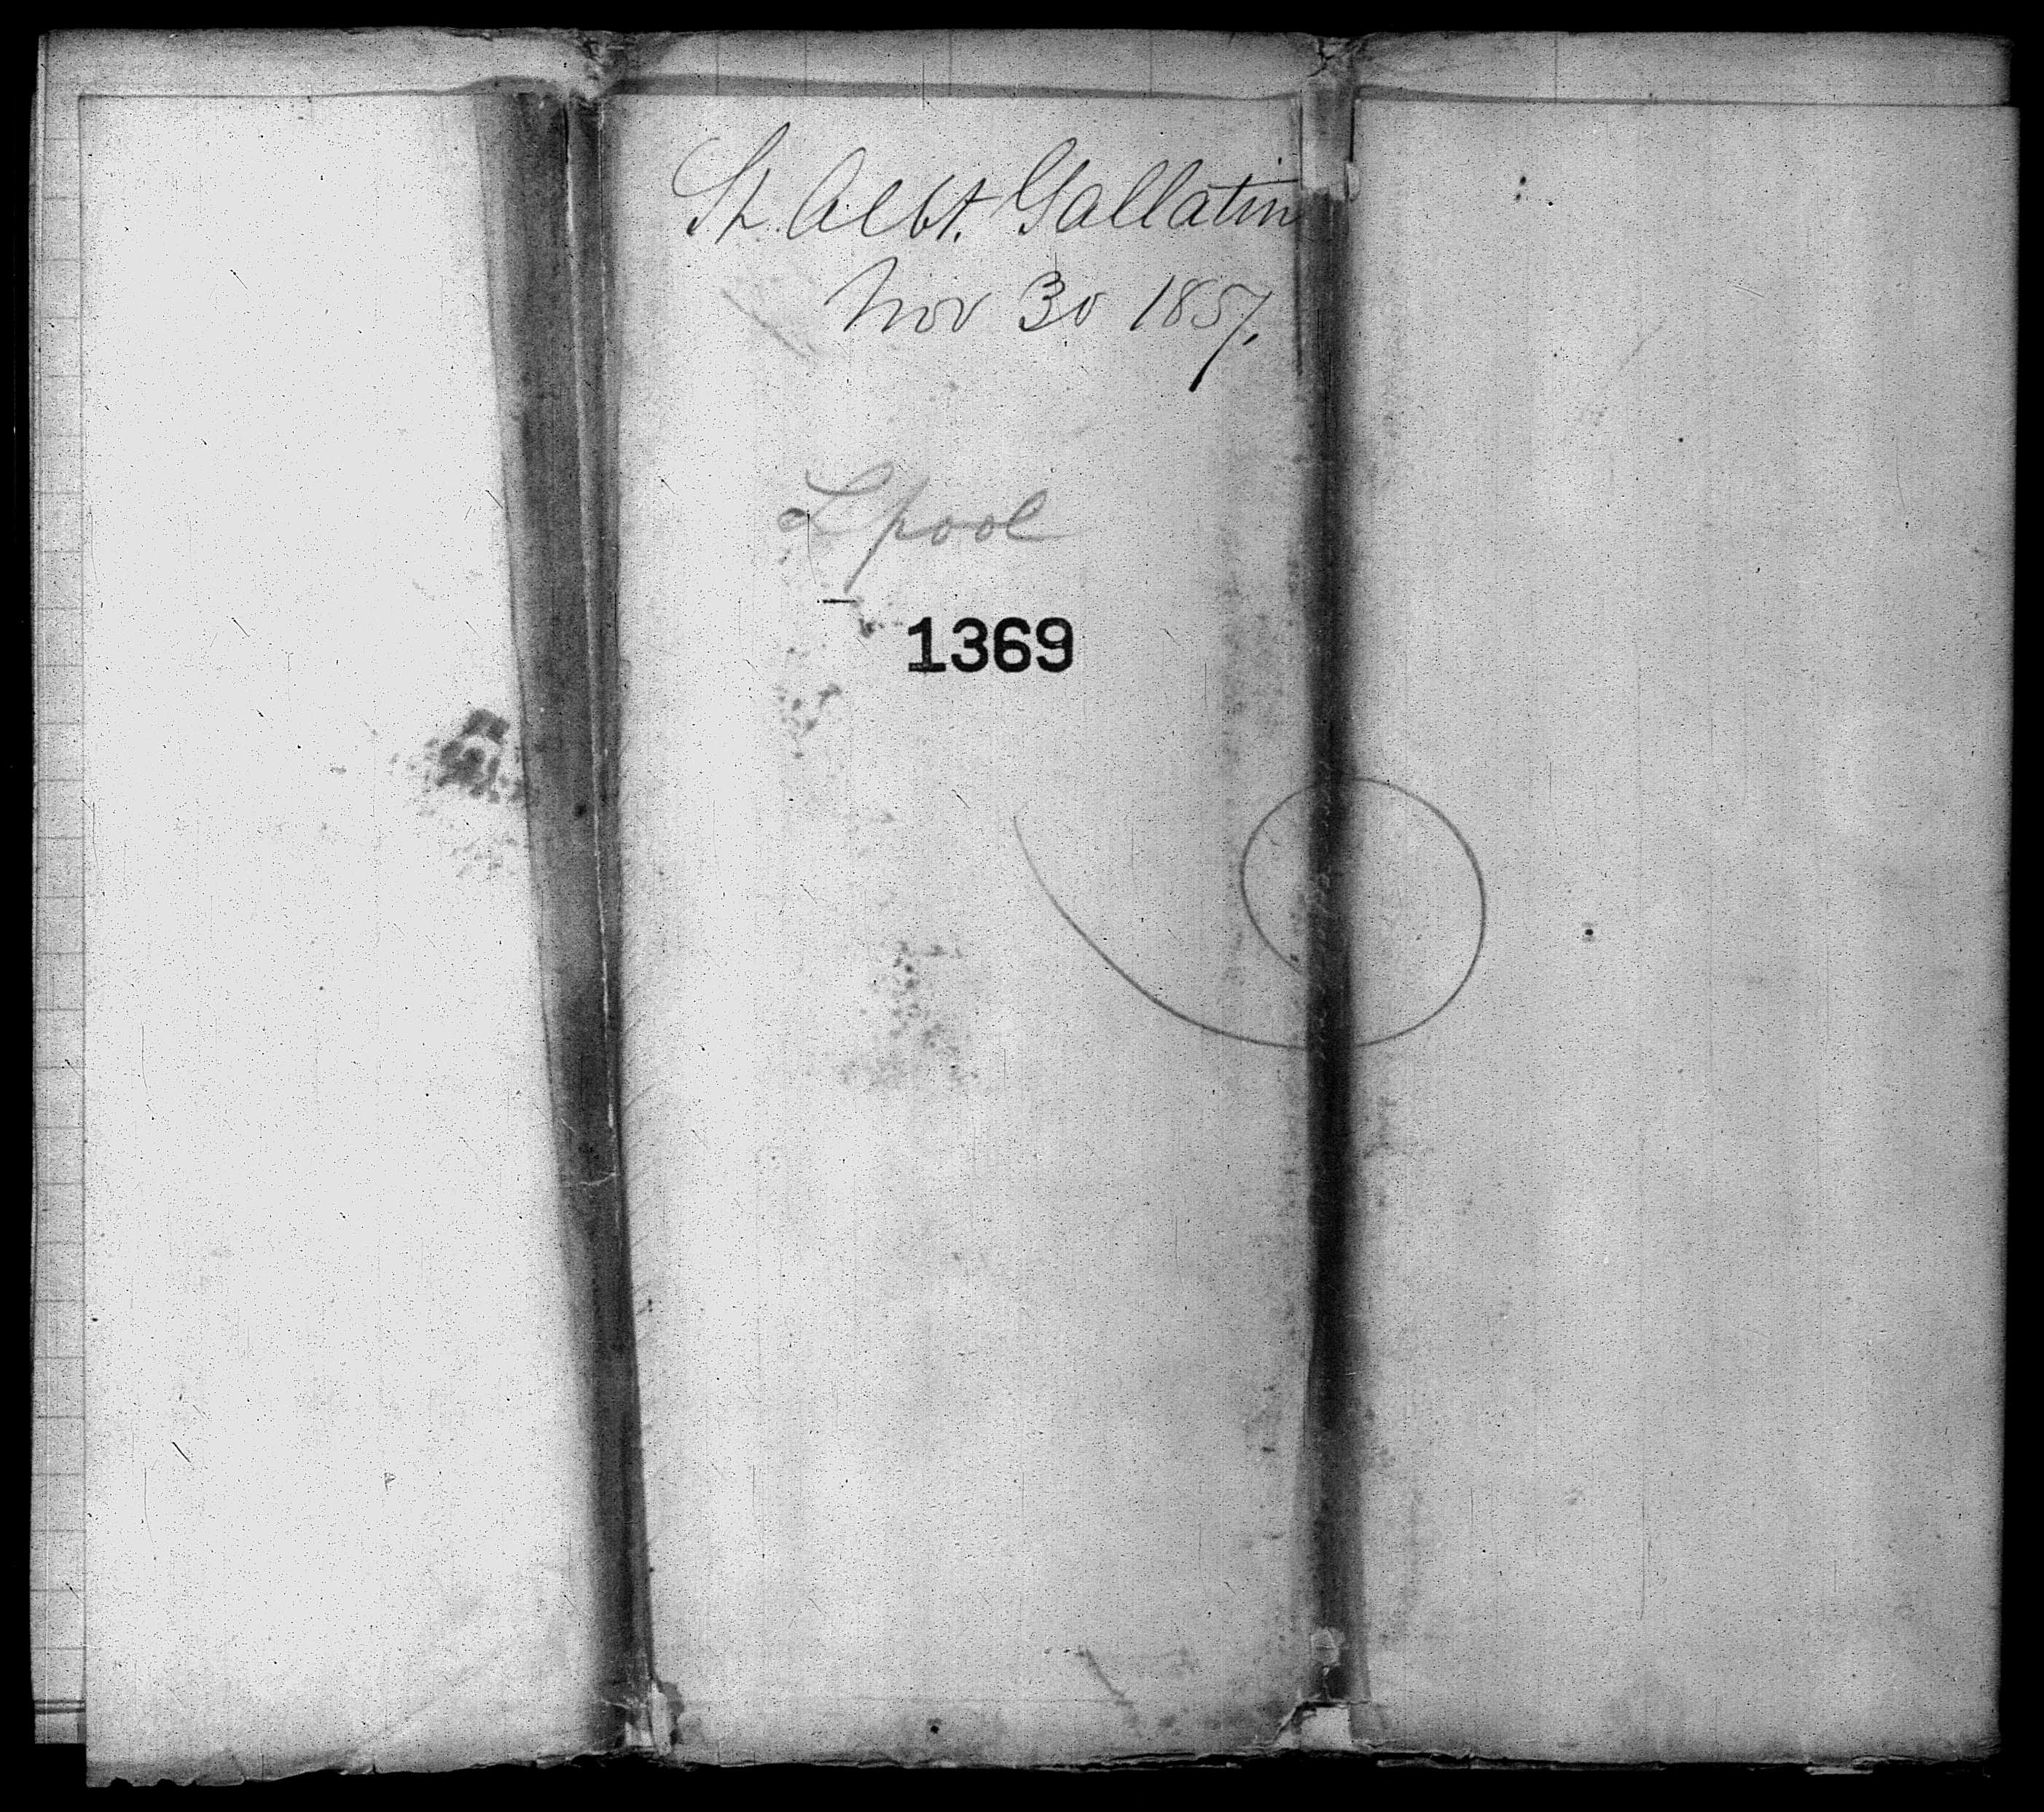 Sh. Albt. Gallatin
Nov 30 1857.
Lpool
1369